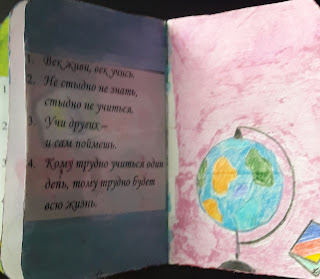 1. Век живи, век учись.
2. Не стыдно не знать,
стыдно не учиться.
3. Учи других –
и сам поймешь.
4. Кому трудно учиться один
день, тому трудно будет
всю жизнь.